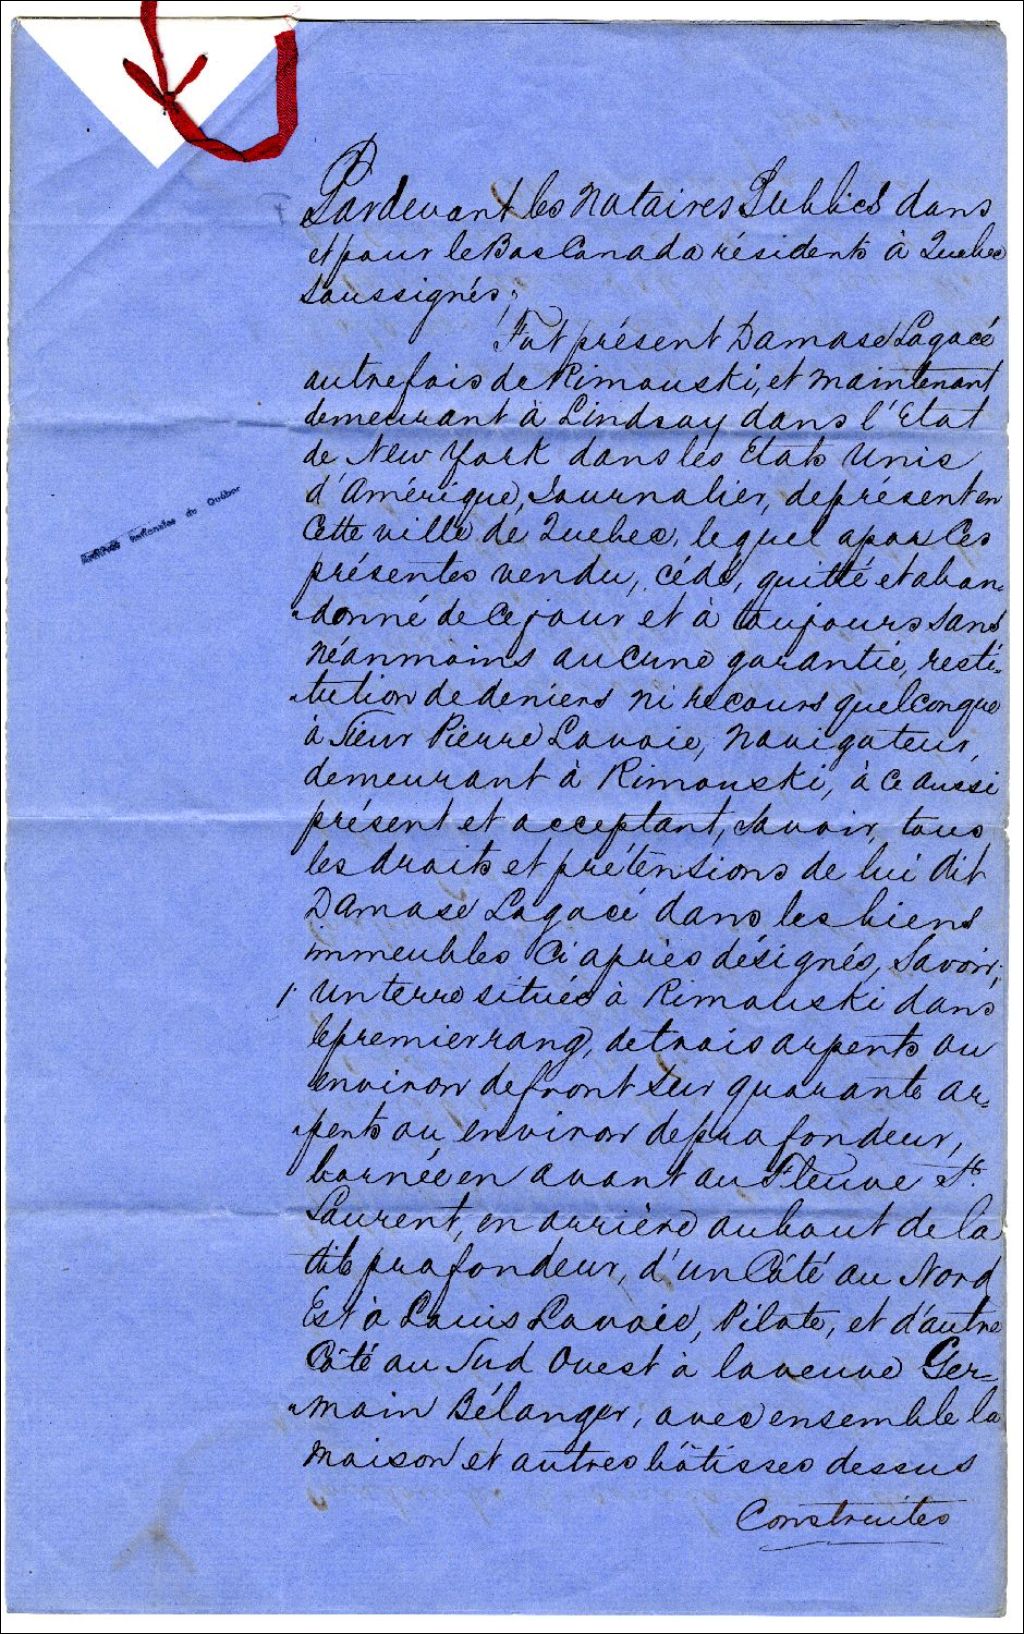 Pardevant les Notaires Publics dans
et pour le Bas Canada résidents à Quebec
Soussignés;
Fut présent Damase Lagacé
autrefois de Rimouski, et maintenant
demeurant à Lindsay dans l'Etat
de New York dans les Etats Unis
d'Amérique, Journalier, de présent en
Cette ville de Quebec, lequel a par Ces
présentes vendu, cédé, quitté et aban-
-donné de Ce jour et à toujours sans
Néanmoins aucune garantie, resti-
-tution de deniers ni recours quelconque
à Sieur Pierre Lavoie, Navigateur,
demeurant à Rimouski, à Ce aussi
présent et acceptant, Savoir, tous
les droits et prétensions de lui dit
Damase Lagacé dans les biens
immeubles Ci après désignés, Savoir;
1. Un terre située à Rimouski dans
le premier rang, de trois arpents ou
environ de front sur quarante ar-
-pents ou environ de profondeur,
bornée en avant au Fleuve St.
Laurent, en arrière au bout de la
dite profondeur, d'un Côté au Nord
Est à Louis Lavoie, Pilote, et d'autre
Côté au Sud Ouest à la veuve Ger-
-main Bélanger, avec ensemble la
maison et autres bâtisses dessus
Construites
Archives nationales du Québec